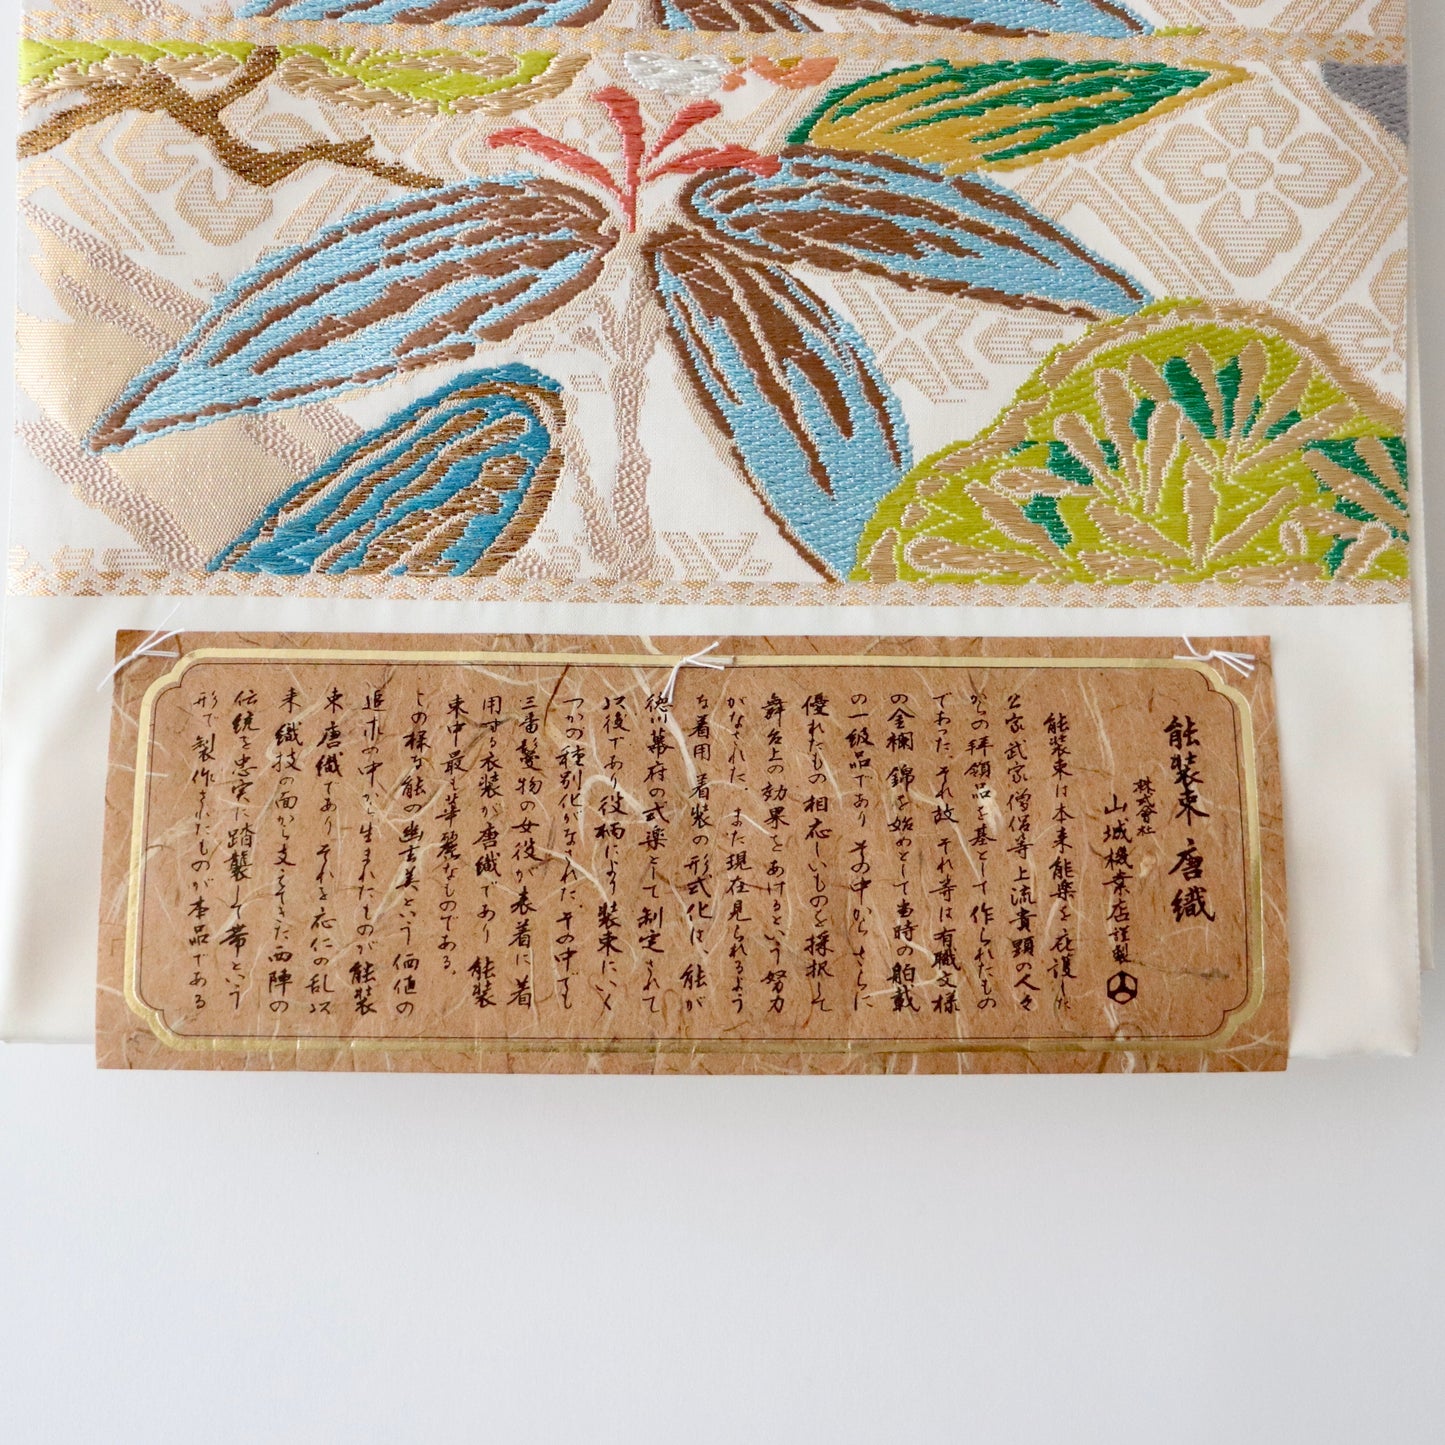 能装束 唐織
株式会社
山城機業店謹製
能装束は本来能楽を庇護した
公家武家僧侶等上流貴顕の人々
からの拝領品を基として作られたもの
であった。それ故 それ等は有職文様
の金襴 錦を始めとして当時の舶載
の一級品であり その中から さらに
優れたもの 相応しいものを採択して
舞台上の効果をあげるという努力
がなされた。また現在見られるよう
な着用 着装の形式化は、能が
徳川幕府の式楽として制定されて
以後であり役柄により装束にいく
つかの種別化がなされた。その中でも
三番鬘物の女役が表着に着
用する衣装が唐織であり 能装
束中最も華麗なものである。
この様な能の幽玄美という価値の
追求の中から生まれたものが能装
束 唐織であり それを応仁の乱以
来 織技の面から支えてきた西陣の
伝統を忠実に踏襲して帯という
形で製作されたものが本品である